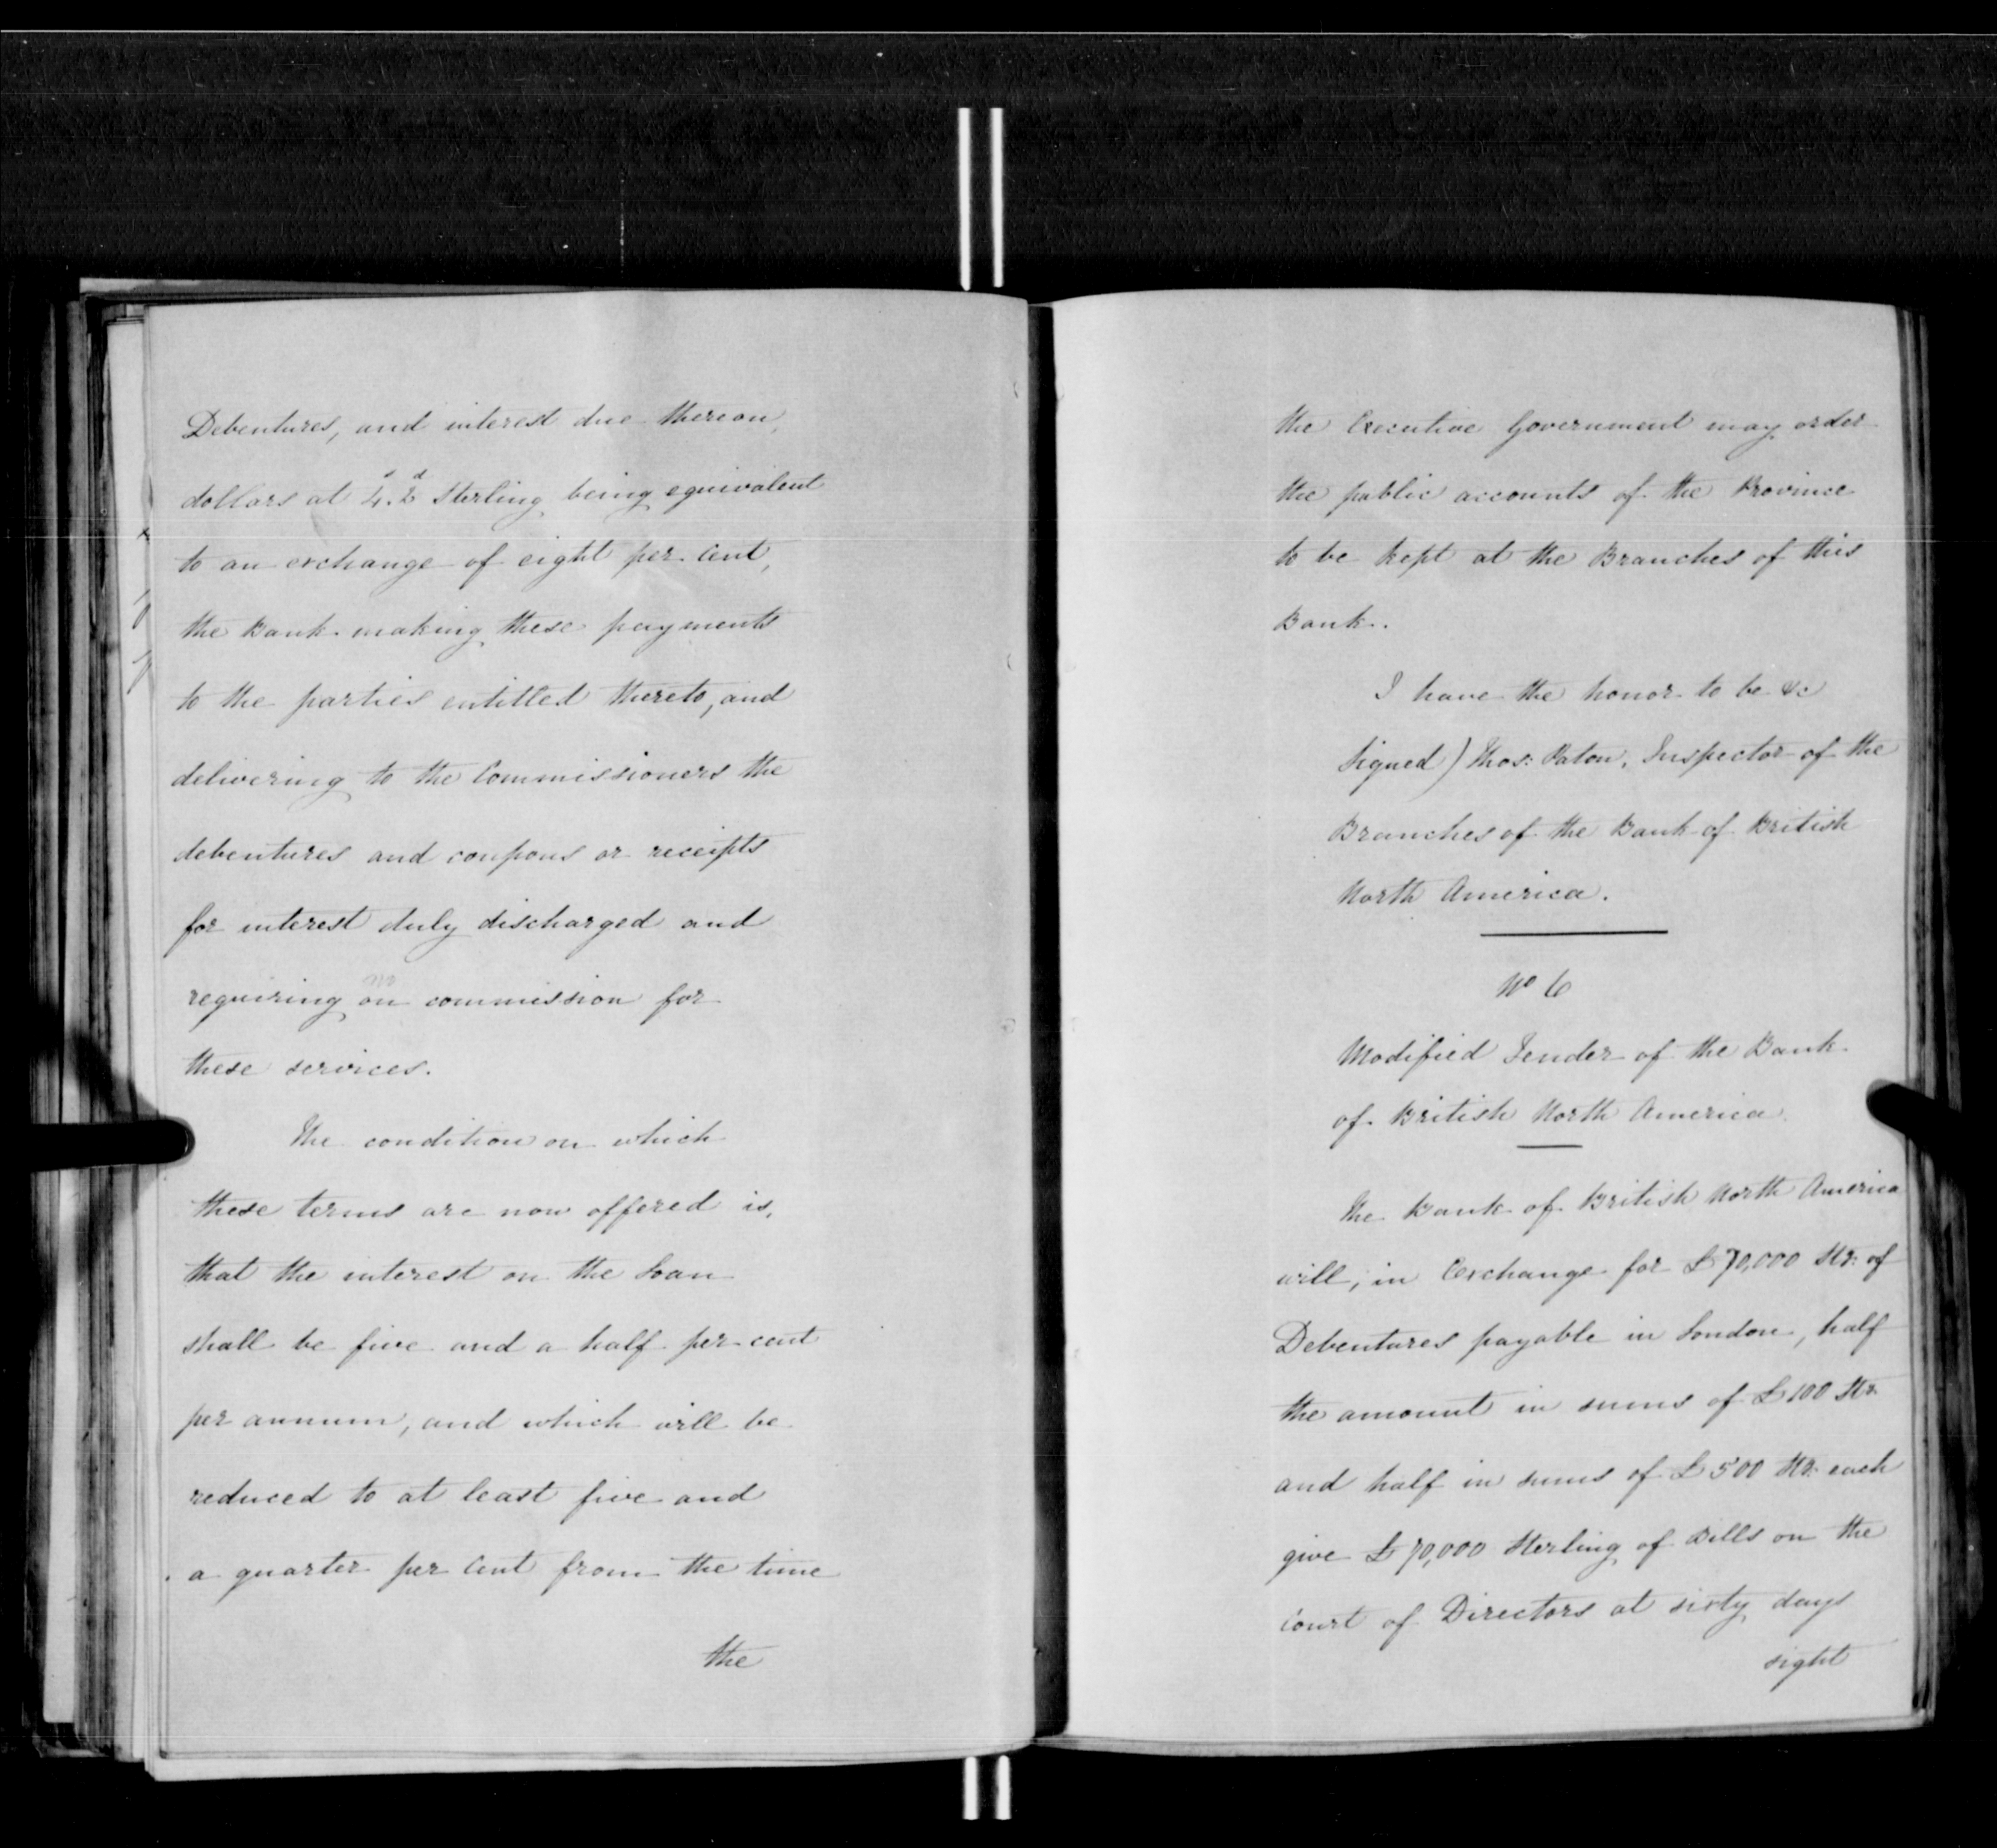 Debentures, and interest due thereon,
dollars at 4.s 2d Sterling being equivalent
to an exchange of eight per Cent,
the Bank making these payments
to the parties entitled thereto, and
delivering to the Commissioners the
debentures and coupons or receipts
for interest duly discharged and
no
requiring on commission for
these services.
The condition on which
these terms are now offered is,
that the interest on the Loan
shall be five and a half per cent
per annum, and which will be
reduced to at least five and
a quarter per Cent from the time
the
the Executive Government may order
the public accounts of the Province
to be kept at the Branches of this
Bank.
I have the honor to be &c
Signed) Thos: Paton, Inspector of the
Branches of the Bank of British
North America.
No 6
Modified Tender of the Bank
of British North America.
The Bank of British North America
will, in Exchange for £70,000 Str: of
Debentures payable in London, half
the amount in sums of £100 Str.
and half in sums of £500 Str: each
give £70,000 Sterling of Bills on the
Court of Directors at sixty days
sight